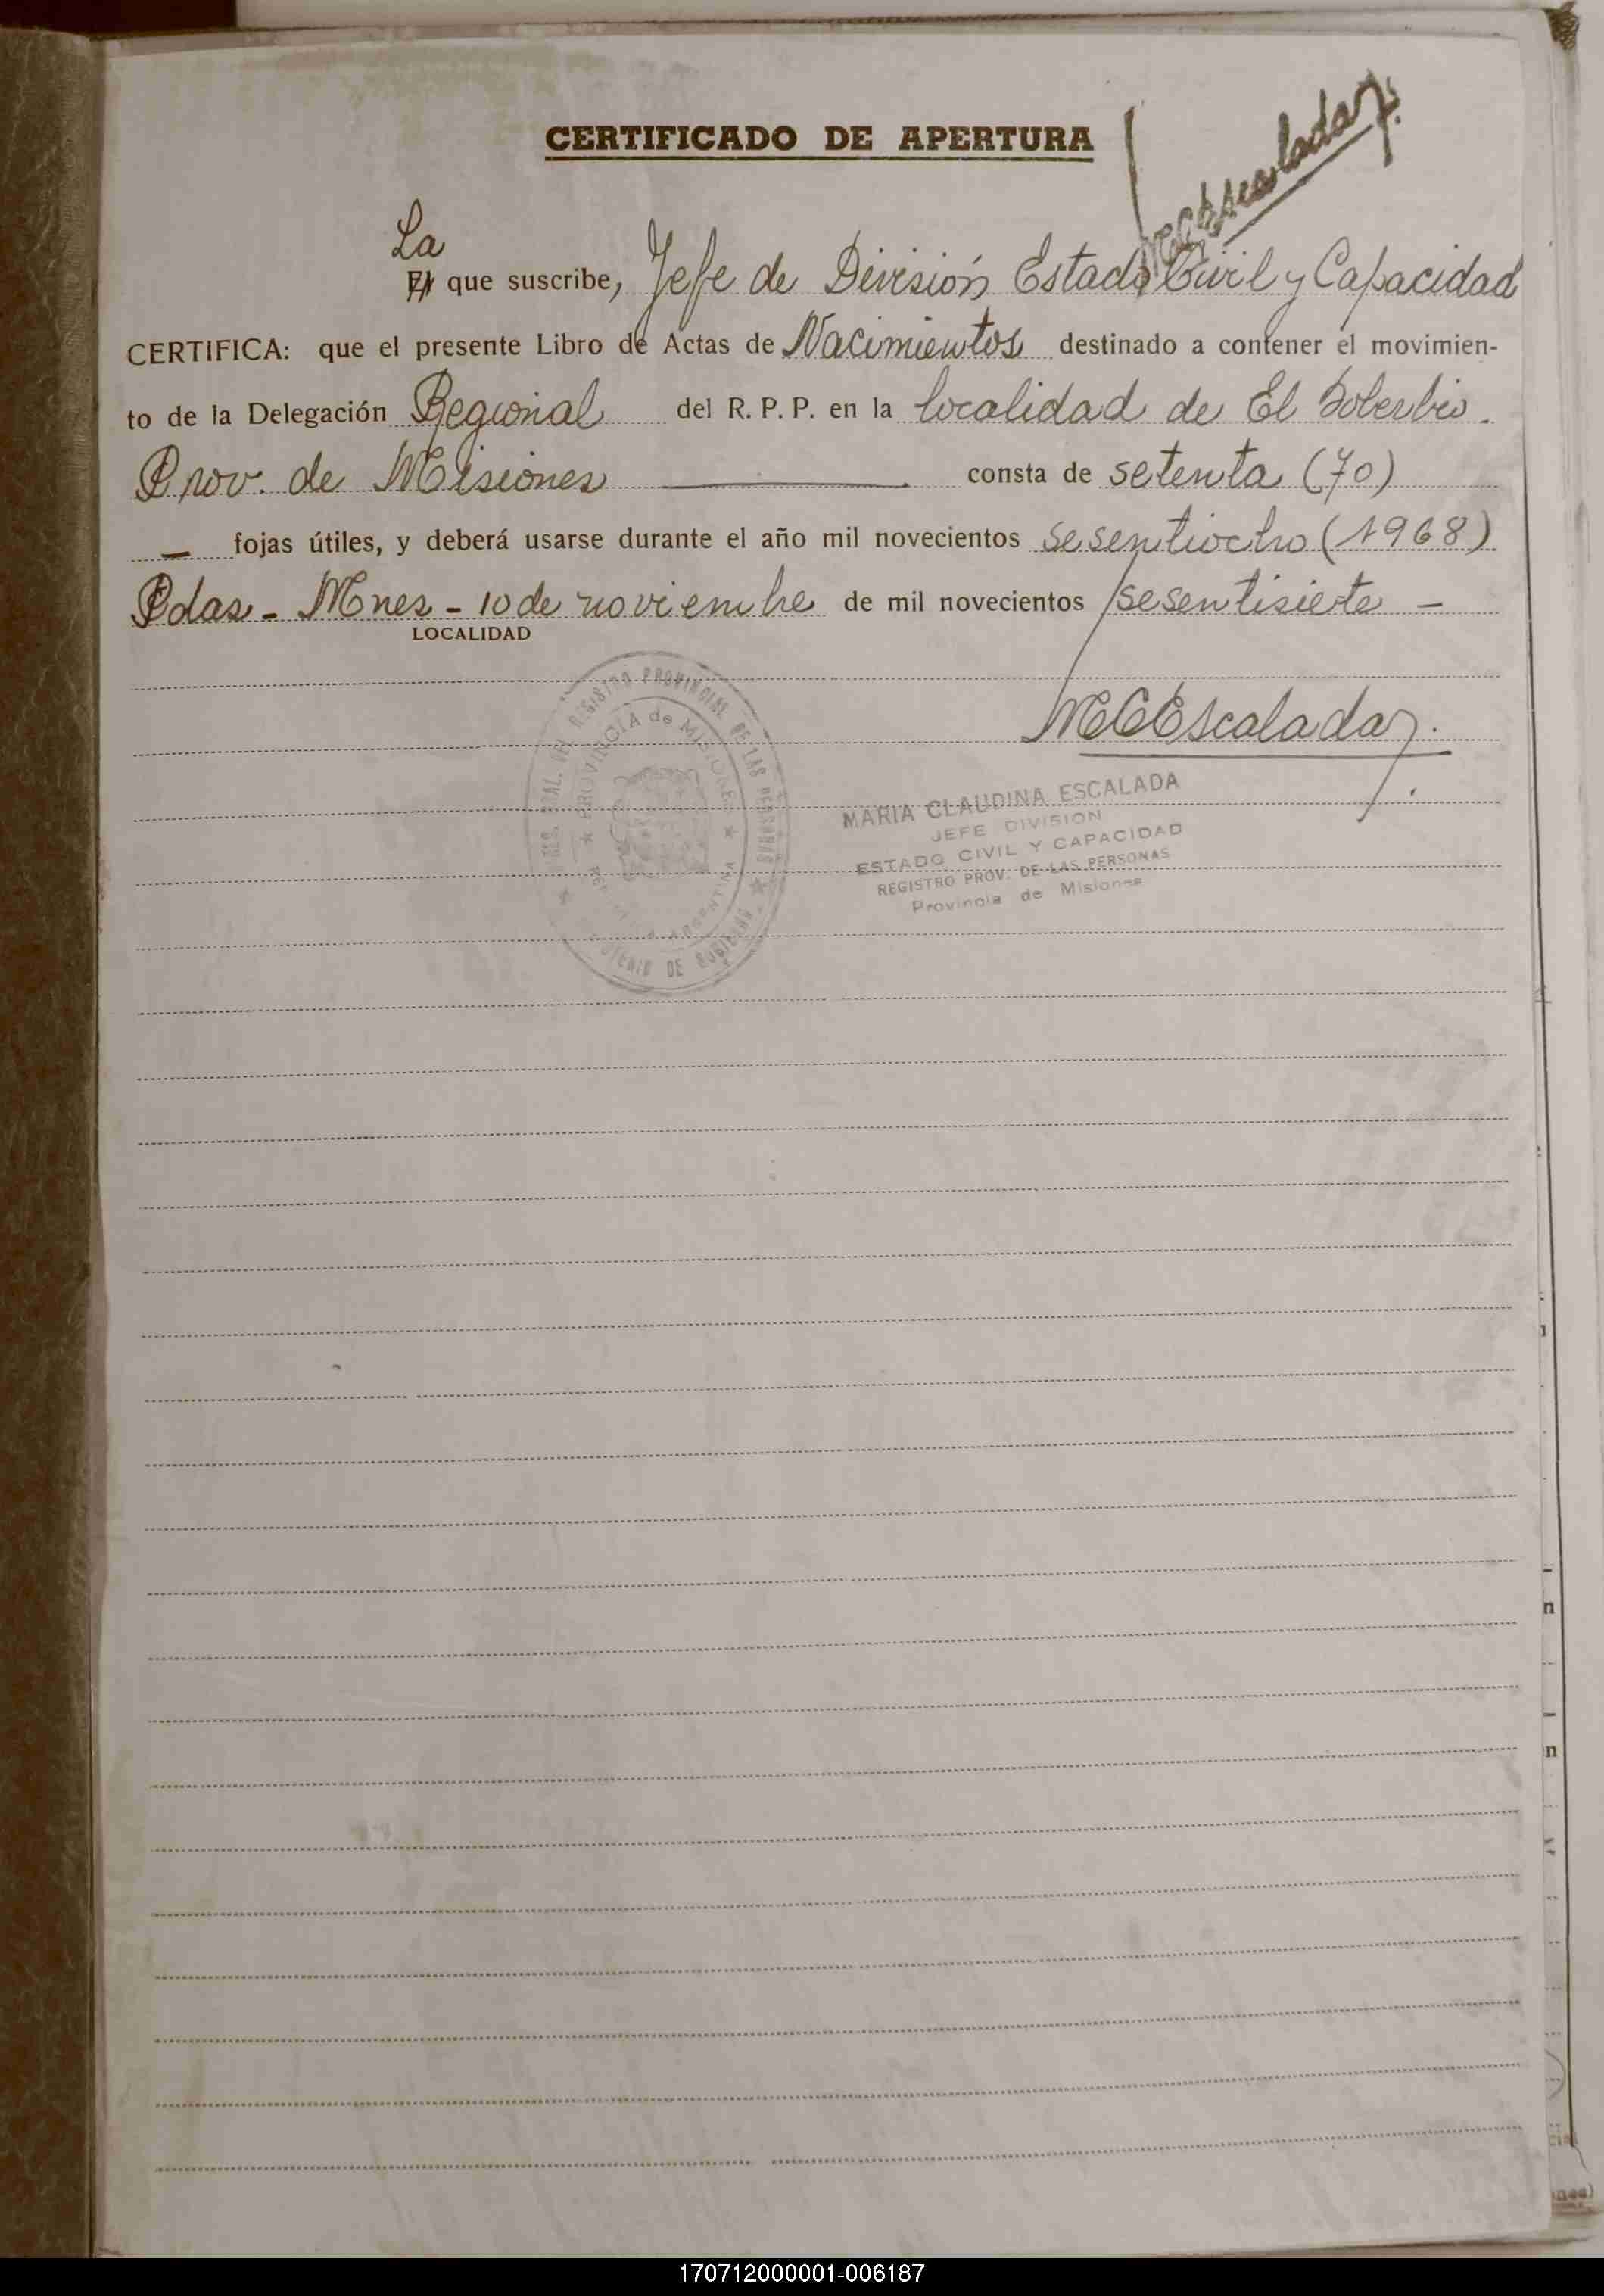 CERTIFICADO DE APERTURA
MCEscalada
La
El que suscribe, Jefe de División Estado Civil y Capacidad
CERTIFICA: que el presente Libro de Actas de Nacimientos destinado a contener el movimien-
to de la Delegación Regional del R. P. P. en la localidad de El Soberbio.
Prov. de Misiones —— consta de setenta (70)
— fojas útiles, y deberá usarse durante el año mil novecientos sesentiocho (1968)
Pdas - Mnes - 10 de noviembre de mil novecientos sesentisiete —
LOCALIDAD
MCEscalada
REGISTRO PROVINCIAL DE LAS PERSONAS
PROVINCIA de MISIONES
ARGENTINA
MARIA CLAUDINA ESCALADA
JEFE DIVISION
ESTADO CIVIL Y CAPACIDAD
REGISTRO PROV. DE LAS PERSONAS
Provincia de Misiones
170712000001-006187